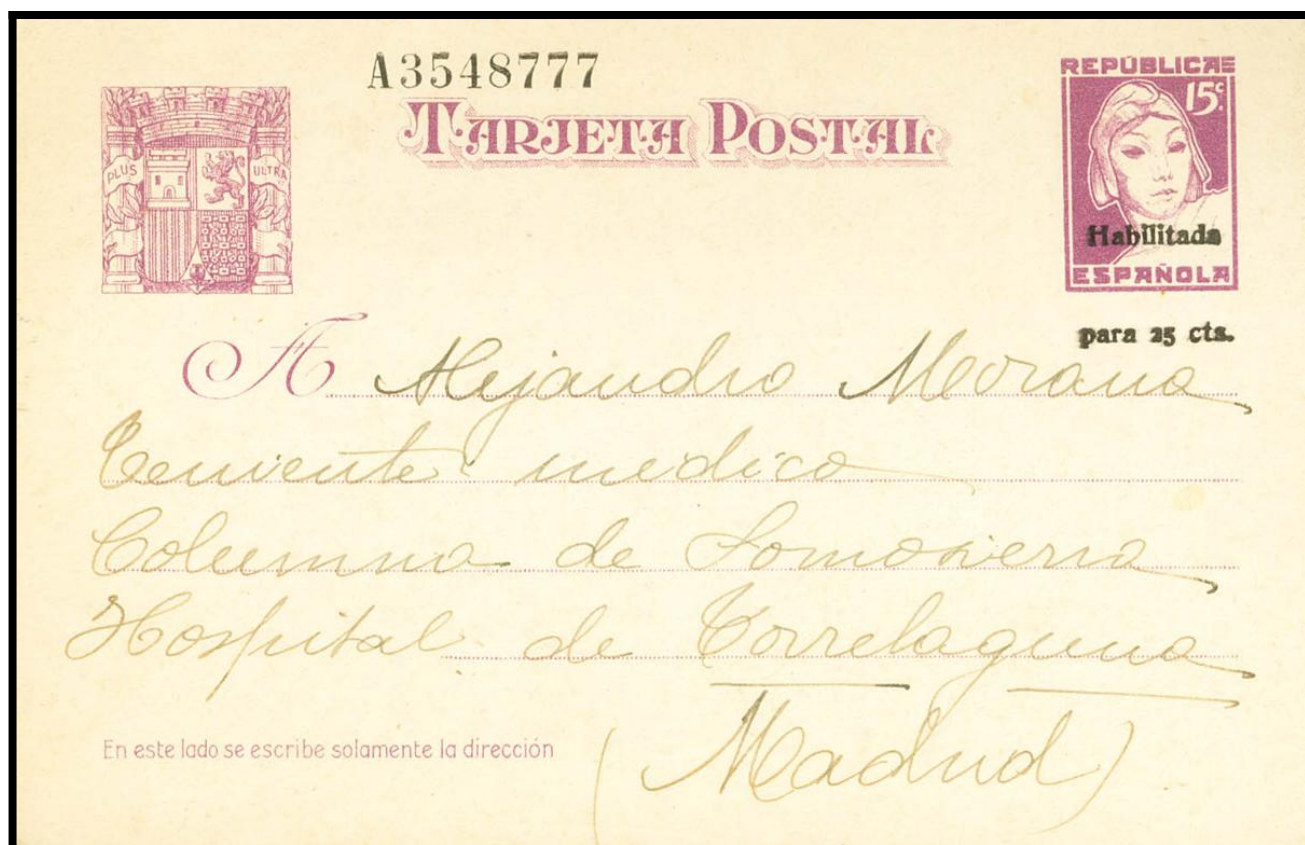 A3548777
TARJETA POSTAL
PLUS ULTRA
REPÚBLICA
15c
Habilitada
ESPAÑOLA
para 25 cts.
A Alejandro
Teniente medico
Columna de Somosierra
Hospital de Torrelaguna
(Madrid)
En este lado se escribe solamente la dirección